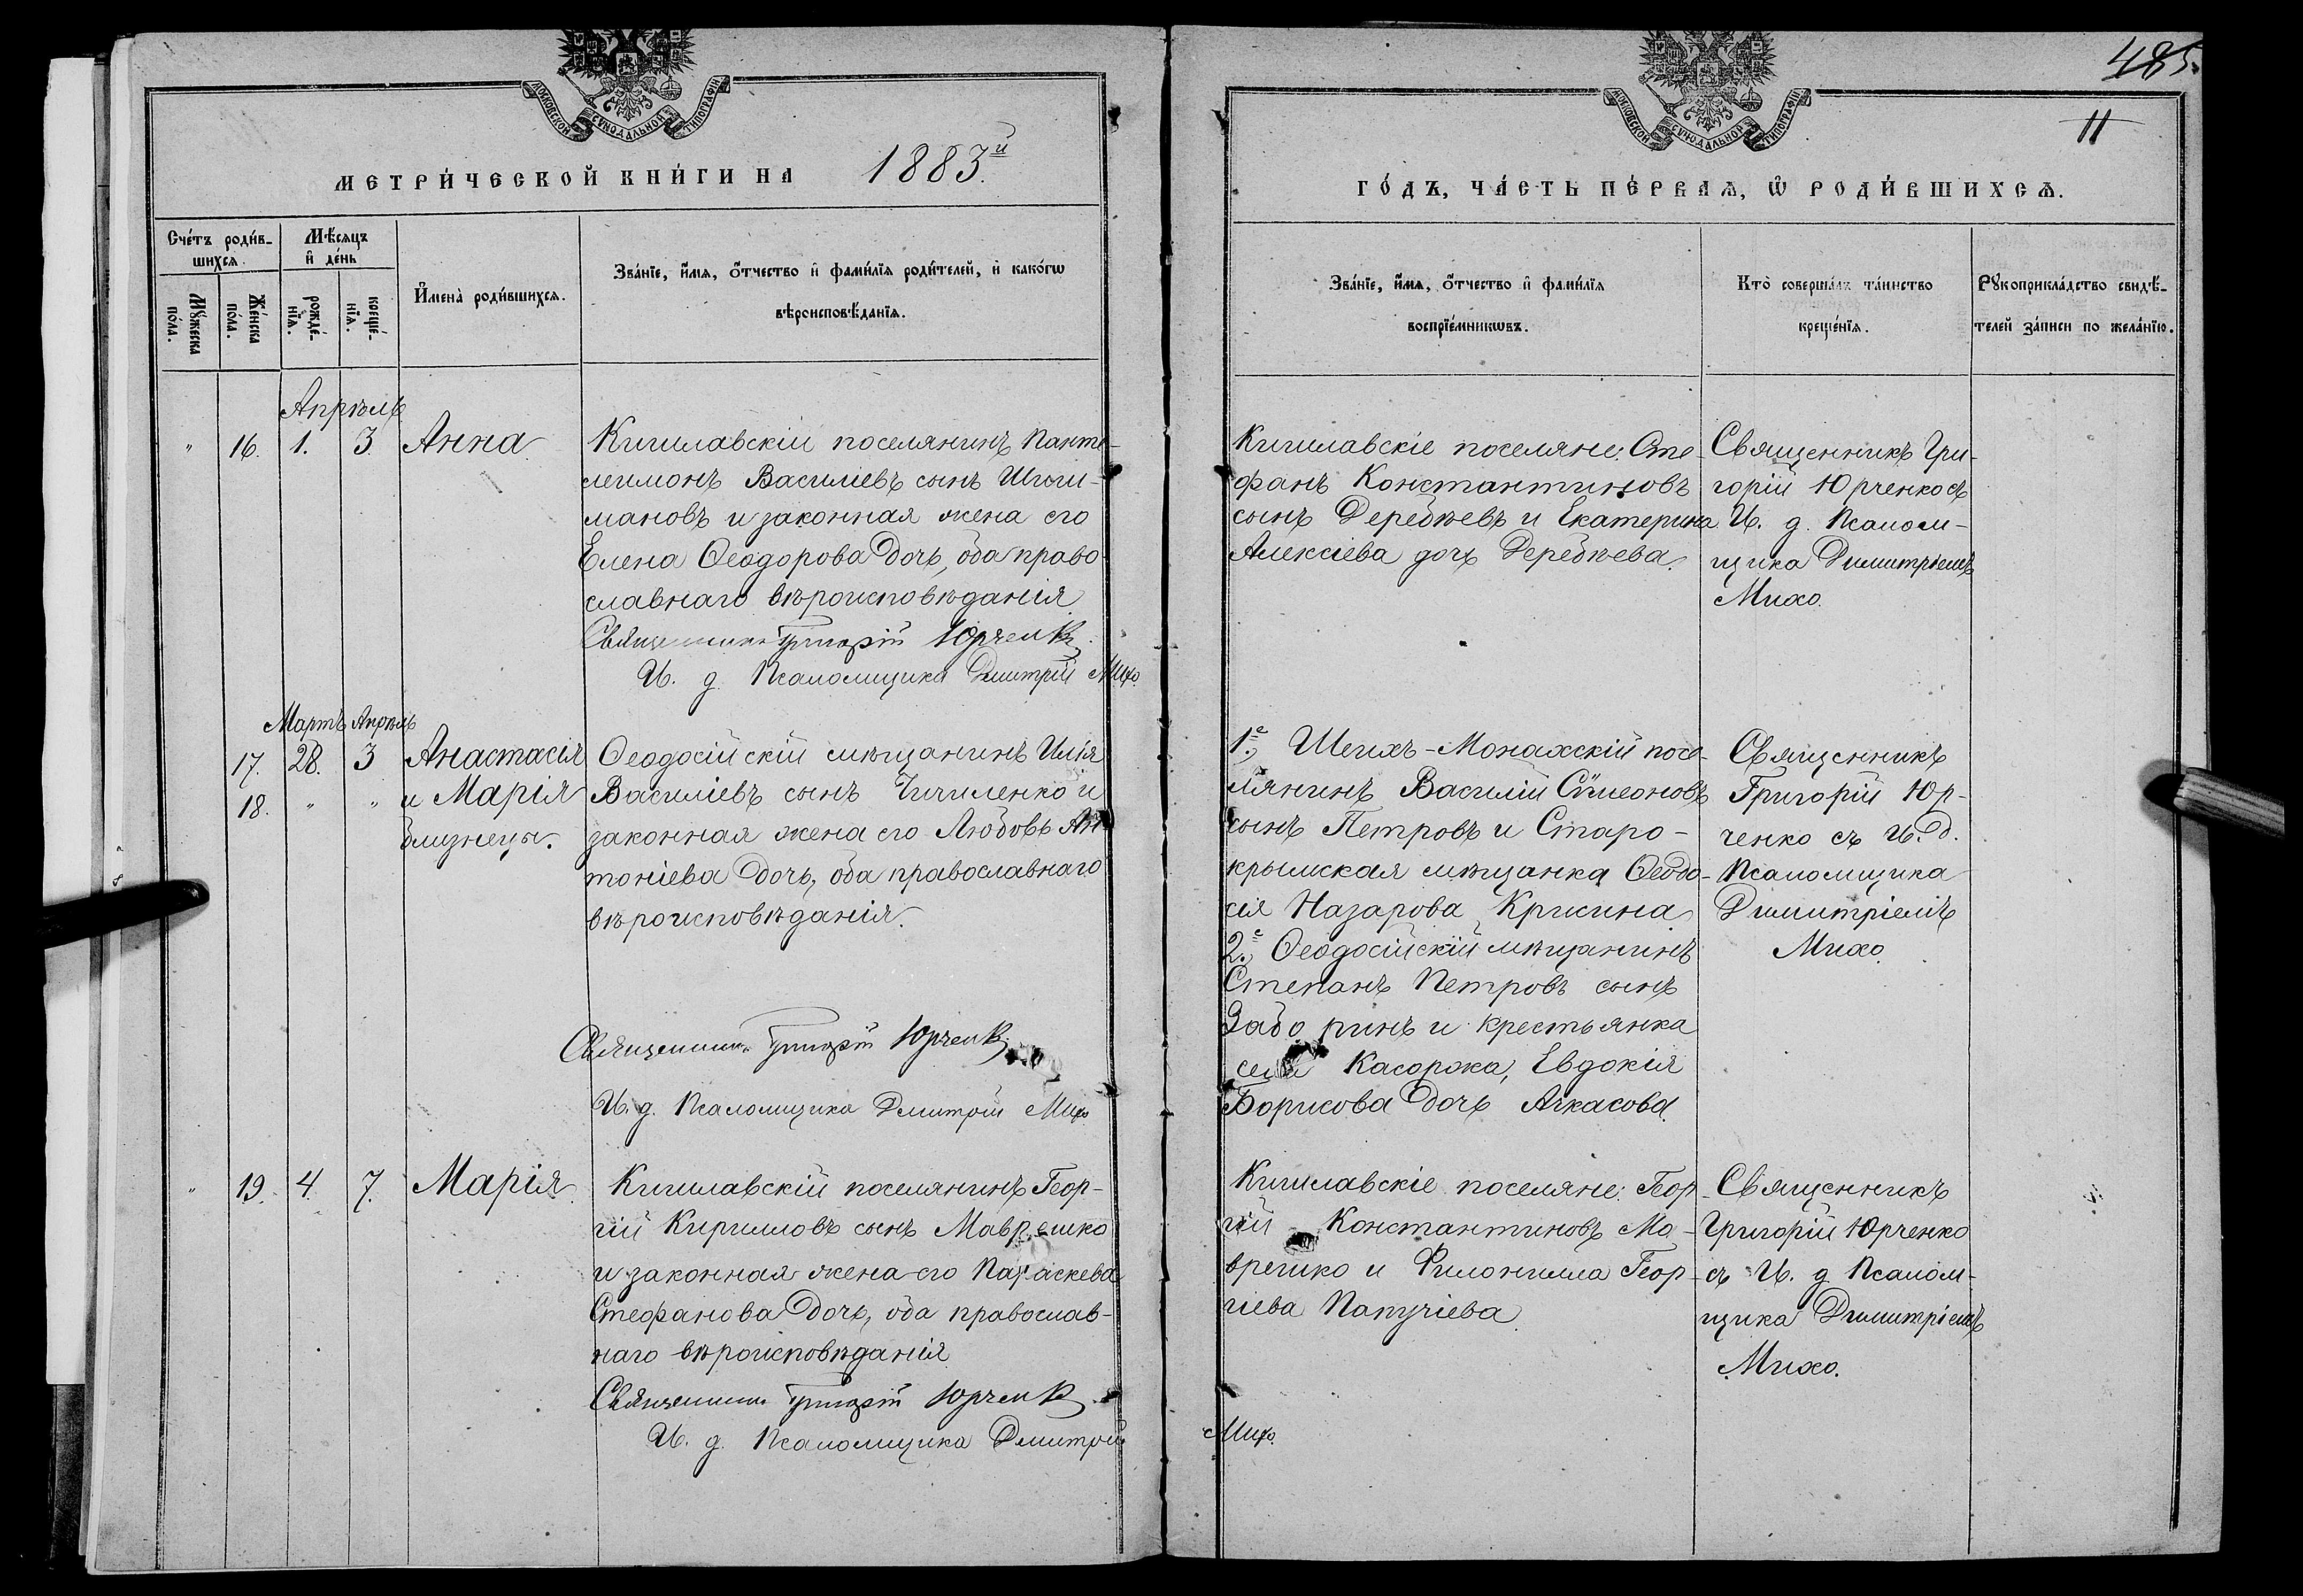 МОСКОВСКОЙ СѴНОДАЛЬНОЙ ТИПОГРАФІИ
МЕТРИ́ЧЕСКОЙ КНИ́ГИ НА 1883й
Сче́тъ роди́в-
шихсѧ.
Мѣ́сяцъ
и҆ де́нь
Мꙋ́жеска
по́ла.
Же́нска
по́ла.
рожде́-
нїѧ.
креще́-
нїѧ.
И҆мена̀ роди́вшихсѧ.
Зва́нїе, и҆́мѧ, ѻ҆́тчество и҆ фами́лїѧ роди́телей, и҆ како́гѡ
вѣроисповѣ́данїѧ.
Апрѣль
" 16. 1. 3. Анна
Кишлавскій поселянинъ Панте-
леимонъ Василіевъ сынъ
мановъ и законная жена его
Елена Ѳеодорова дочь, оба право-
славнаго вѣроисповѣданія.
Священникъ Григорій Юрченко
И. д. Псаломщика Дмитрій Михо.
Мартъ Апрѣль
17. 28. 3 Анастасія
18. " " и Марія
близнецы.
Ѳеодосійскій мѣщанинъ Илія
Василіевъ сынъ Чичиленко и
законная жена его Любовь Ан-
тоніева дочь, оба православнаго
вѣроисповѣданія.
Священникъ Григорій Юрченко
И. д. Псаломщика Дмитрій Михо
" 19. 4. 7. Марія
Кишлавскій поселянинъ Геор-
гій Кирилловъ сынъ Маврешко
и законная жена его Параскева
Стефанова дочь, оба православ-
наго вѣроисповѣданія.
Священникъ Григорій Юрченко
И. д. Псаломщика Дмитрій Михо.
485.
11
МОСКОВСКОЙ СѴНОДАЛЬНОЙ ТИПОГРАФІИ
ГО́ДЪ, ЧА́СТЬ ПЕ́РВАѦ, Ѽ РОДИ́ВШИХСѦ.
Зва́нїе, и҆́мѧ, ѻ҆́тчество и҆ фами́лїѧ
воспрїе́мникѡвъ.
Кто̀ соверша́лъ та́инство
креще́нїѧ.
Рꙋкоприкла́дство свидѣ́-
телей за́писи по жела́нїю.
Кишлавскіе поселяне: Сте-
фанъ Константиновъ
сынъ Деребѣевъ и Екатерина
Алексіева дочь Деребѣева.
Священникъ Гри-
горій Юрченко съ
И. д. Псалом-
щика Димитріемъ
Михо.
1.е, Шейхъ-Монахскій посе-
лянинъ Василій Сѵмеоновъ
сынъ Петровъ и Старо-
крымская мѣщанка Ѳеодо-
сія Назарова Крисина
2.е, Ѳеодосійскій мѣщанинъ
Степанъ Петровъ сынъ
Забо ринъ и крестьянка
села Касоржа, Евдокія
Борисова дочь Ачкасова.
Священникъ
Григорій Юр-
ченко съ И. д.
Псаломщика
Димитріемъ
Михо.
Кишлавскіе поселяне: Геор-
гій Константиновъ Ма-
врешко и Филонилла Геор-
гіева Папучіева.
Священникъ
Григорій Юрченко
съ И. д. Псалом-
щика Димитріемъ
Михо.